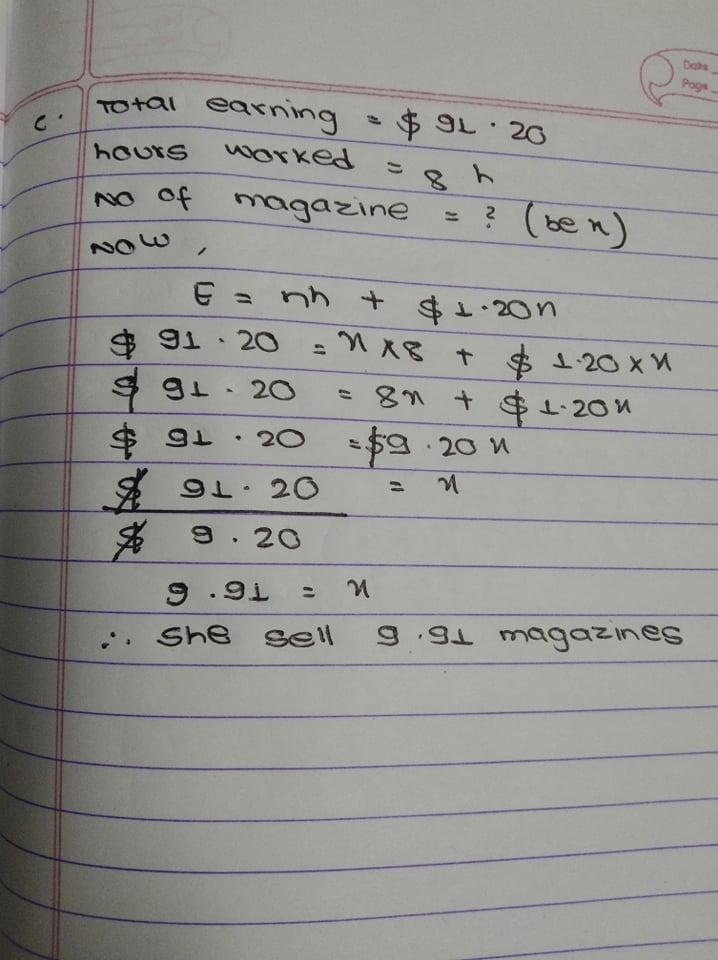 Date
Page
c. Total earning = $ 91.20
hours worked = 8 h
No of magazine = ? (be n)
Now,
E = nh + $ 1.20n
$ 91.20 = n × 8 + $ 1.20 × n
$ 91.20 = 8n + $ 1.20n
$ 91.20 = $9.20 n
$ 91.20 = n
$ 9.20
9.91 = n
∴ she sell 9.91 magazines